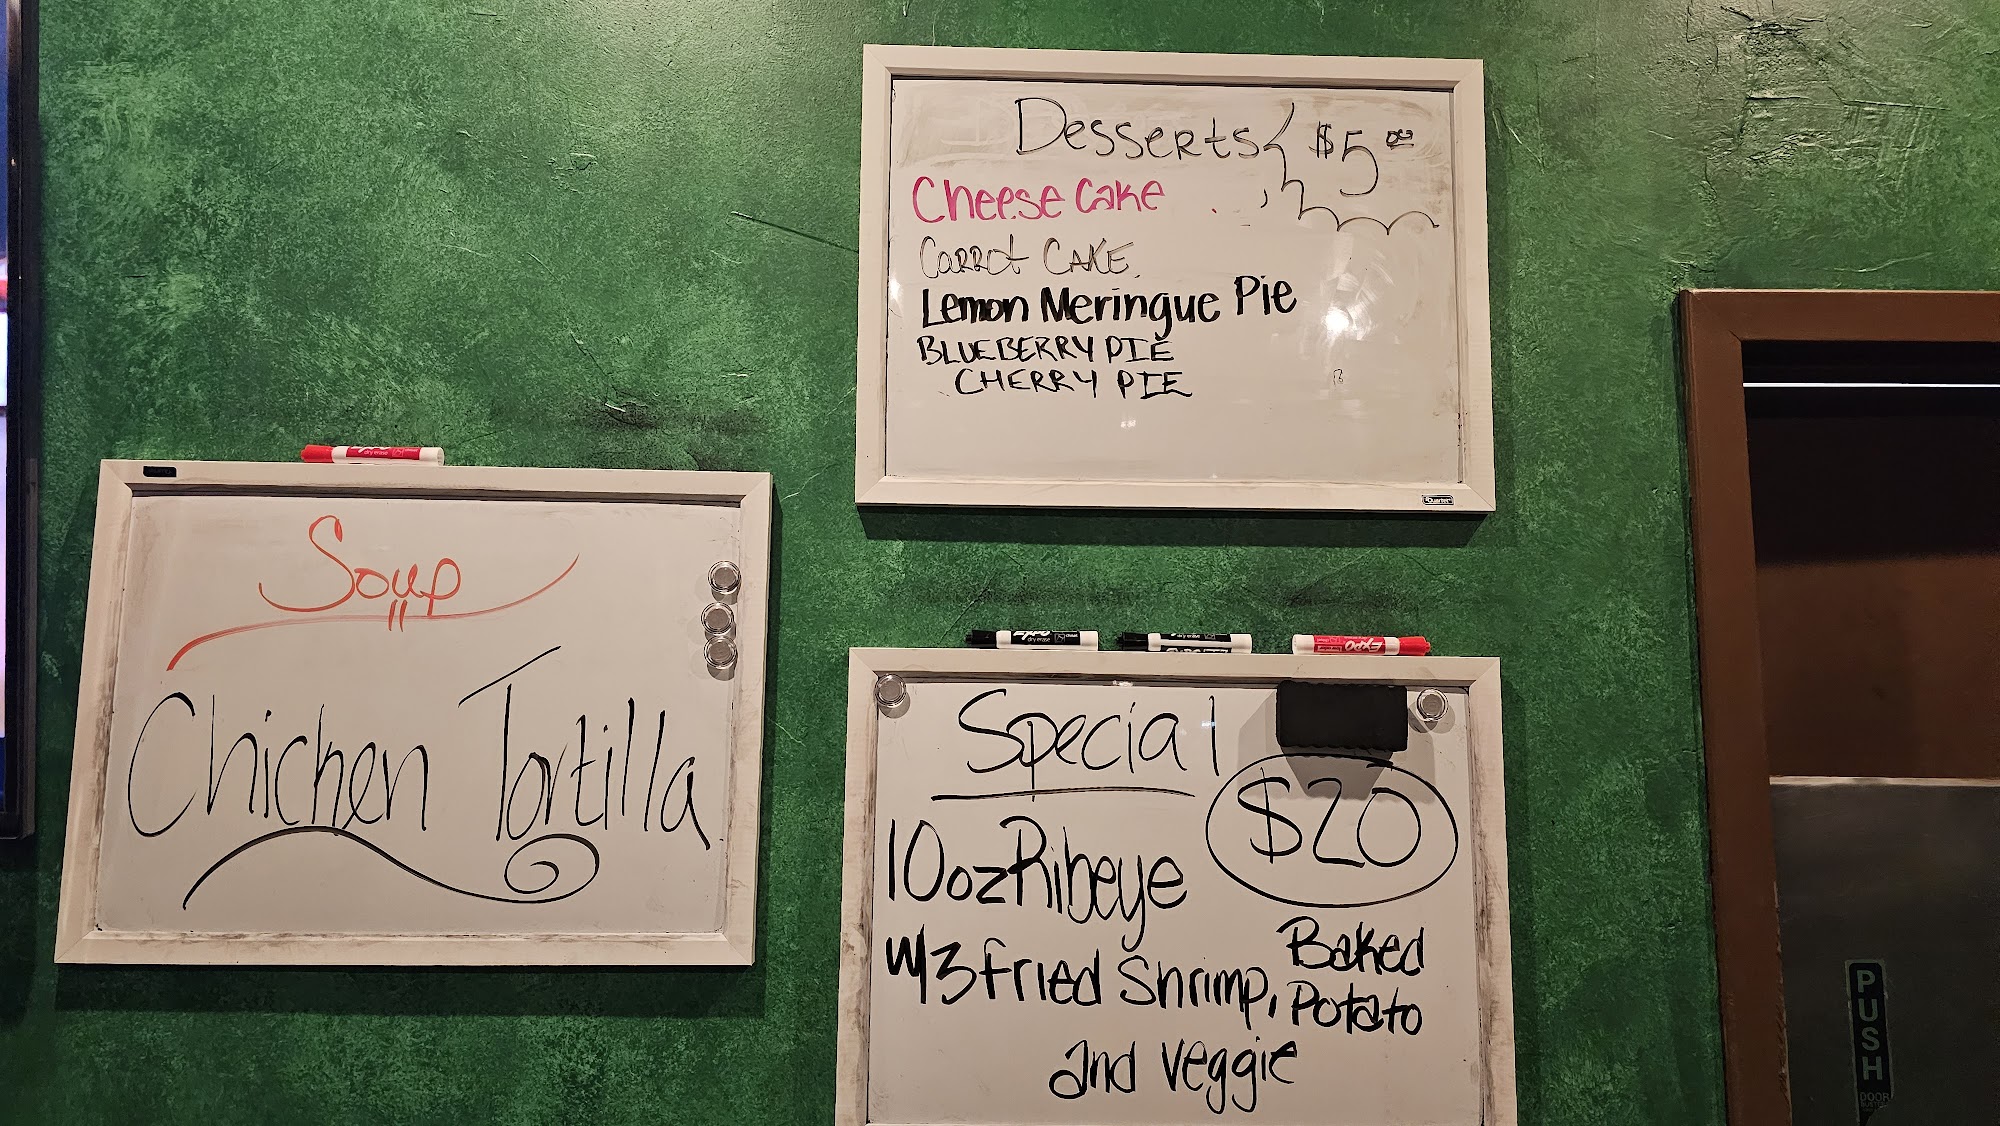 Desserts $5.00
Cheese Cake
Carrot CAKE
Lemon Meringue Pie
BLUEBERRY PIE
CHERRY PIE
Soup
Chicken Tortilla
EXPO
dry erase
EXPO
dry erase
EXPO
Special
$20
10oz Ribeye
w/3 fried Shrimp, Baked Potato
and veggie
PUSH
DOOR